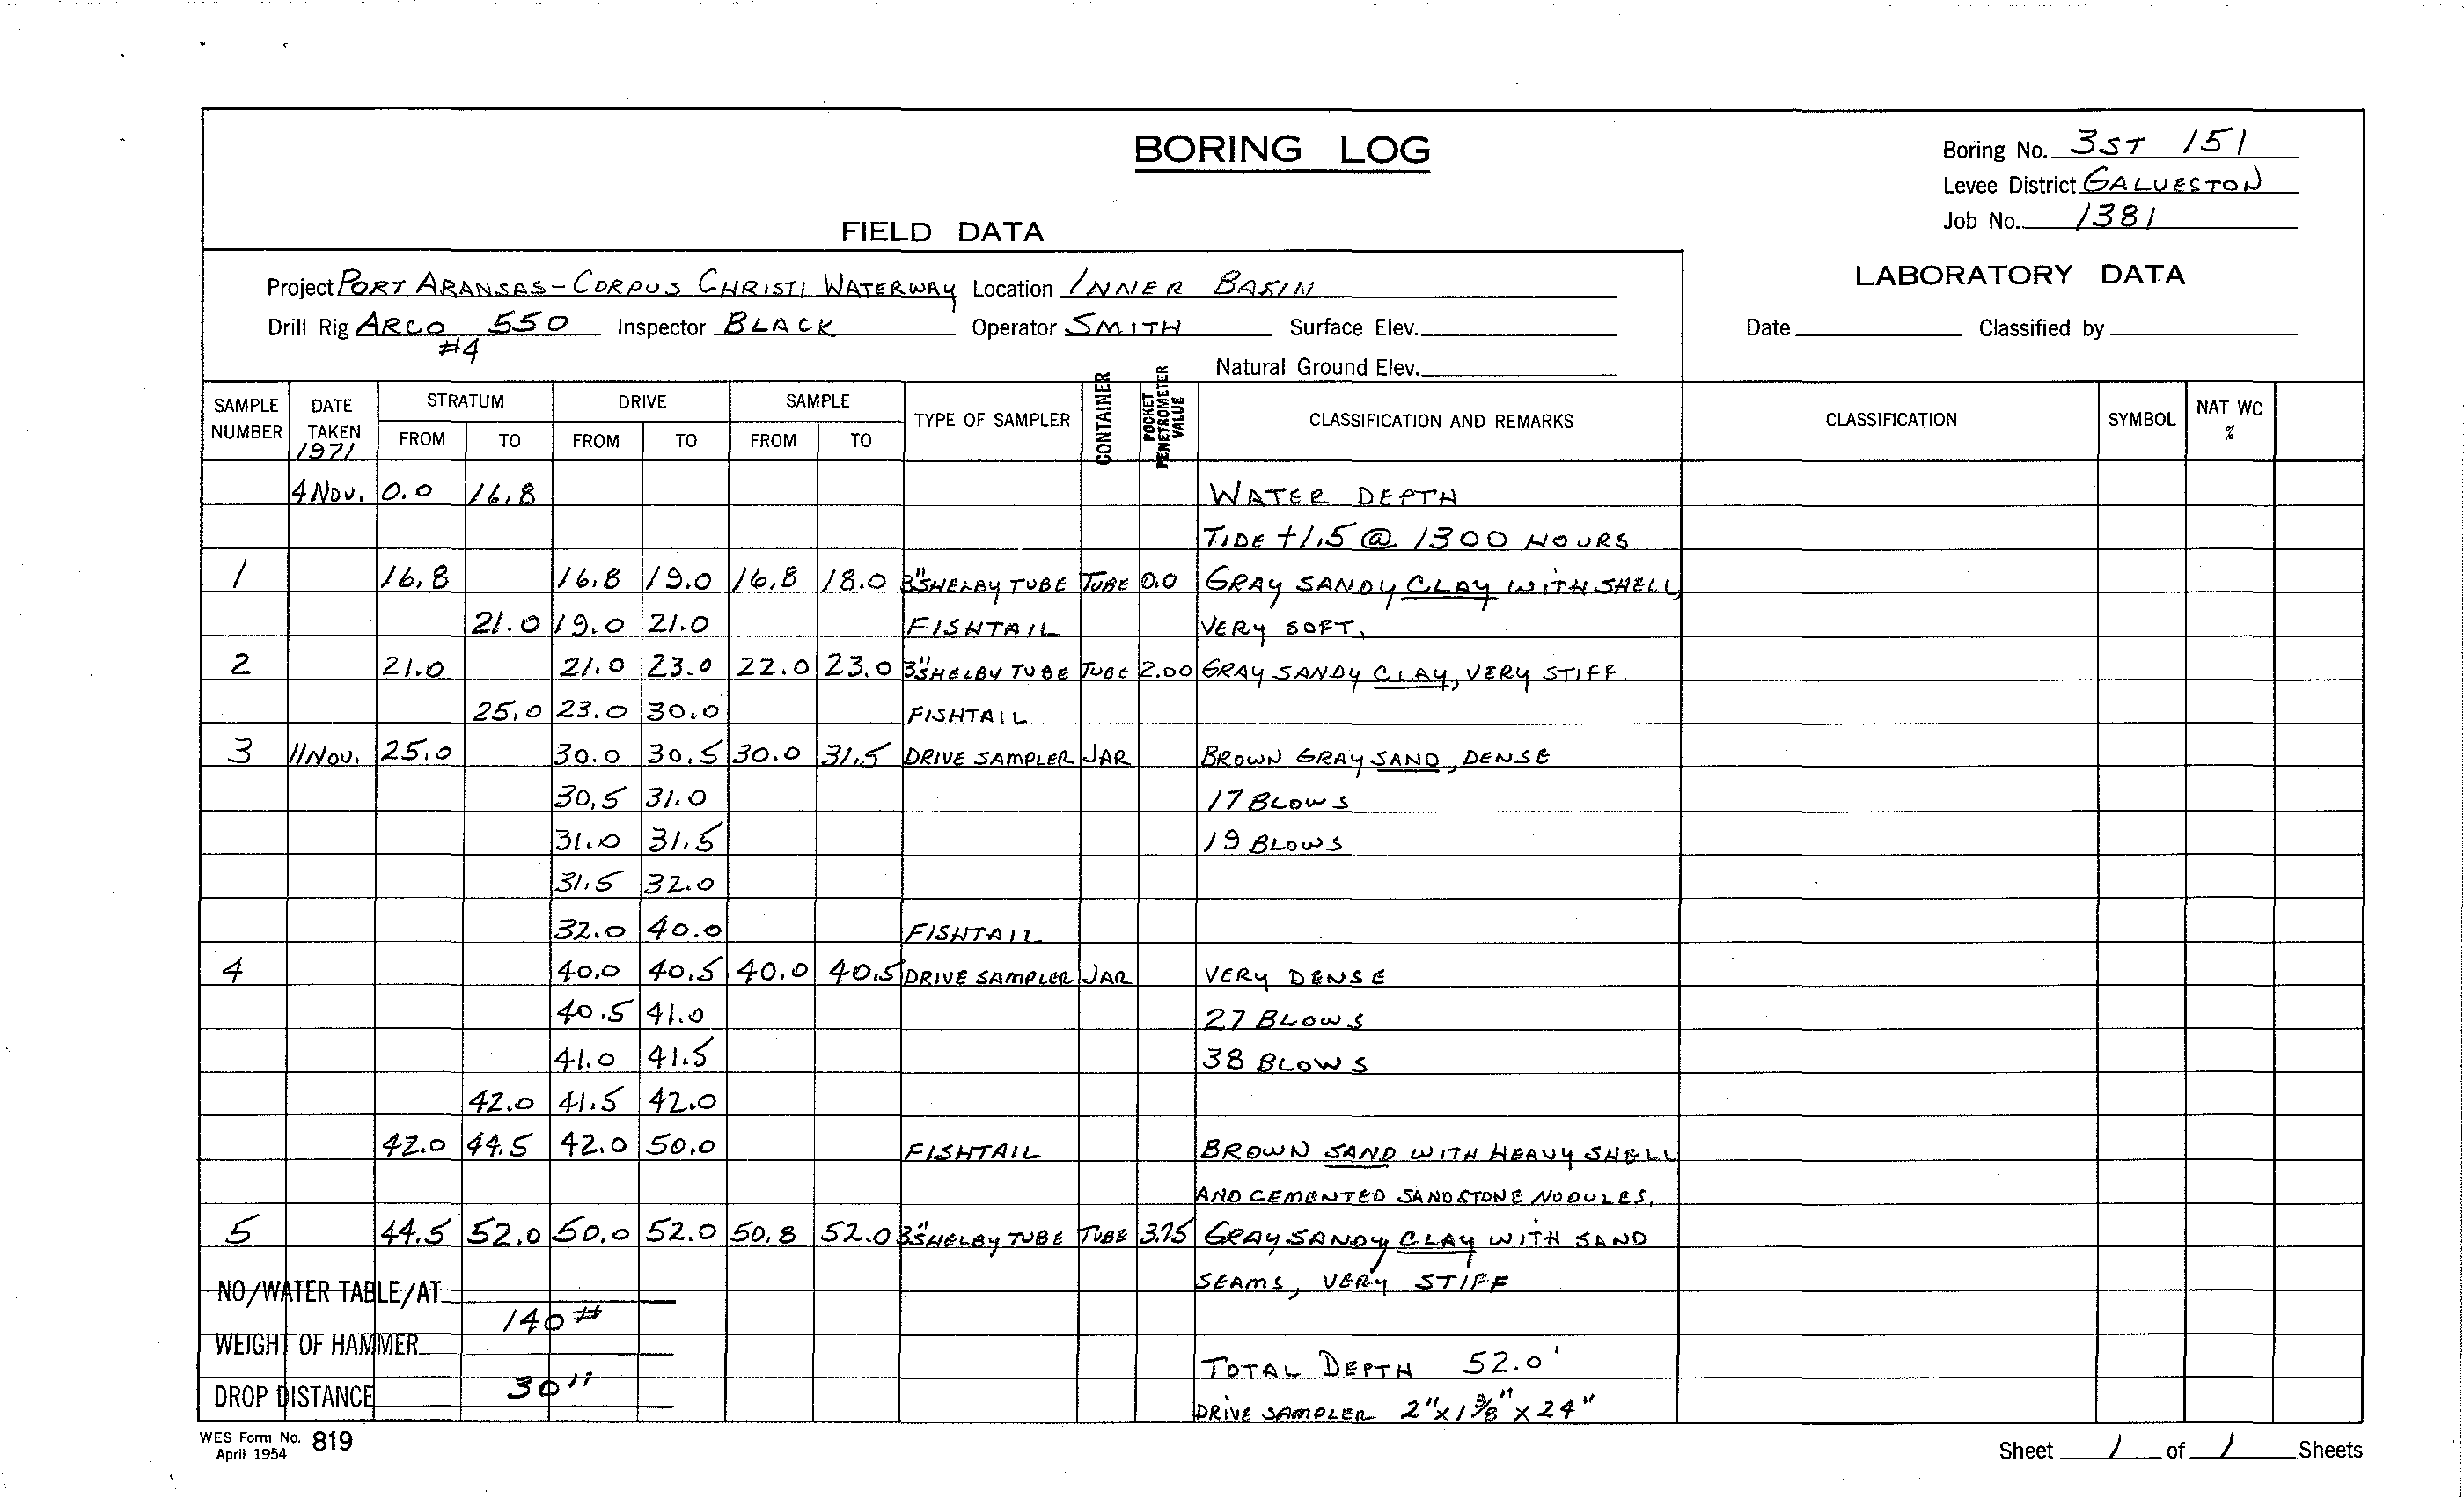 BORING LOG
Boring No. 3ST 151
Levee District GALVESTON
Job No. 1381
FIELD DATA
LABORATORY DATA
Project PORT ARANSAS-CORPUS CHRISTI WATERWAY Location INNER BASIN
Drill Rig ARCO 550 Inspector BLACK Operator SMITH Surface Elev.
#4
Date Classified by
Natural Ground Elev.
SAMPLE NUMBER DATE TAKEN 1971 STRATUM FROM TO DRIVE FROM TO SAMPLE FROM TO TYPE OF SAMPLER CONTAINER POCKET PENETROMETER VALUE CLASSIFICATION AND REMARKS CLASSIFICATION SYMBOL NAT WC %
4 NOV. 0.0 16.8 WATER DEPTH
TIDE +1.5 @ 1300 HOURS
1 16.8 16.8 19.0 16.8 18.0 3" SHELBY TUBE TUBE 0.0 GRAY SANDY CLAY WITH SHELL
21.0 19.0 21.0 FISHTAIL VERY SOFT.
2 21.0 21.0 23.0 22.0 23.0 3" SHELBY TUBE TUBE 2.00 GRAY SANDY CLAY, VERY STIFF
25.0 23.0 30.0 FISHTAIL
3 11 NOV. 25.0 30.0 30.5 30.0 31.5 DRIVE SAMPLER JAR BROWN GRAY SAND, DENSE
30.5 31.0 17 BLOWS
31.0 31.5 19 BLOWS
31.5 32.0
32.0 40.0 FISHTAIL
4 40.0 40.5 40.0 40.5 DRIVE SAMPLER JAR VERY DENSE
40.5 41.0 27 BLOWS
41.0 41.5 38 BLOWS
42.0 41.5 42.0
42.0 44.5 42.0 50.0 FISHTAIL BROWN SAND WITH HEAVY SHELL
AND CEMENTED SANDSTONE NODULES.
5 44.5 52.0 50.0 52.0 50.8 52.0 3" SHELBY TUBE TUBE 3.75 GRAY SANDY CLAY WITH SAND
NO/WATER TABLE/AT SEAMS, VERY STIFF
WEIGHT OF HAMMER 140#
TOTAL DEPTH 52.0'
DROP DISTANCE 30" DRIVE SAMPLER 2"x1 3/8"x24"
WES Form No. 819
April 1954
Sheet 1 of 1 Sheets